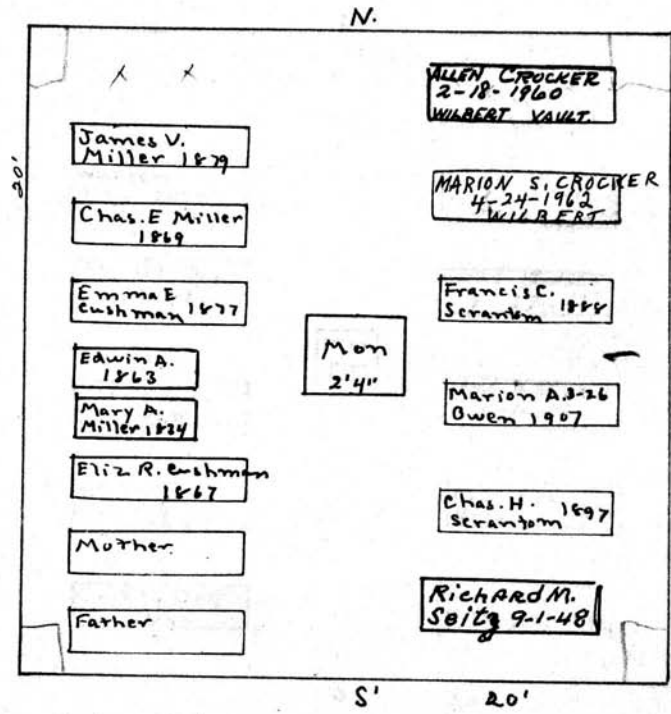 N.
20'
James V.
Miller 1879
Chas. E Miller
1869
Emma E
Cushman 1877
Edwin A.
1863
Mary A.
Miller 1834
Eliz R. Cushman
1867
Mother
Father
Mon
2'4"
ALLEN CROCKER
2-18-1960
WILBERT VAULT.
MARION S. CROCKER
4-24-1962
WILBERT
Francis C.
Scrantom 1888
Marion A. 3-26
Owen 1907
Chas. H. 1897
Scrantom
Richard M.
Seitz 9-1-48
S' 20'